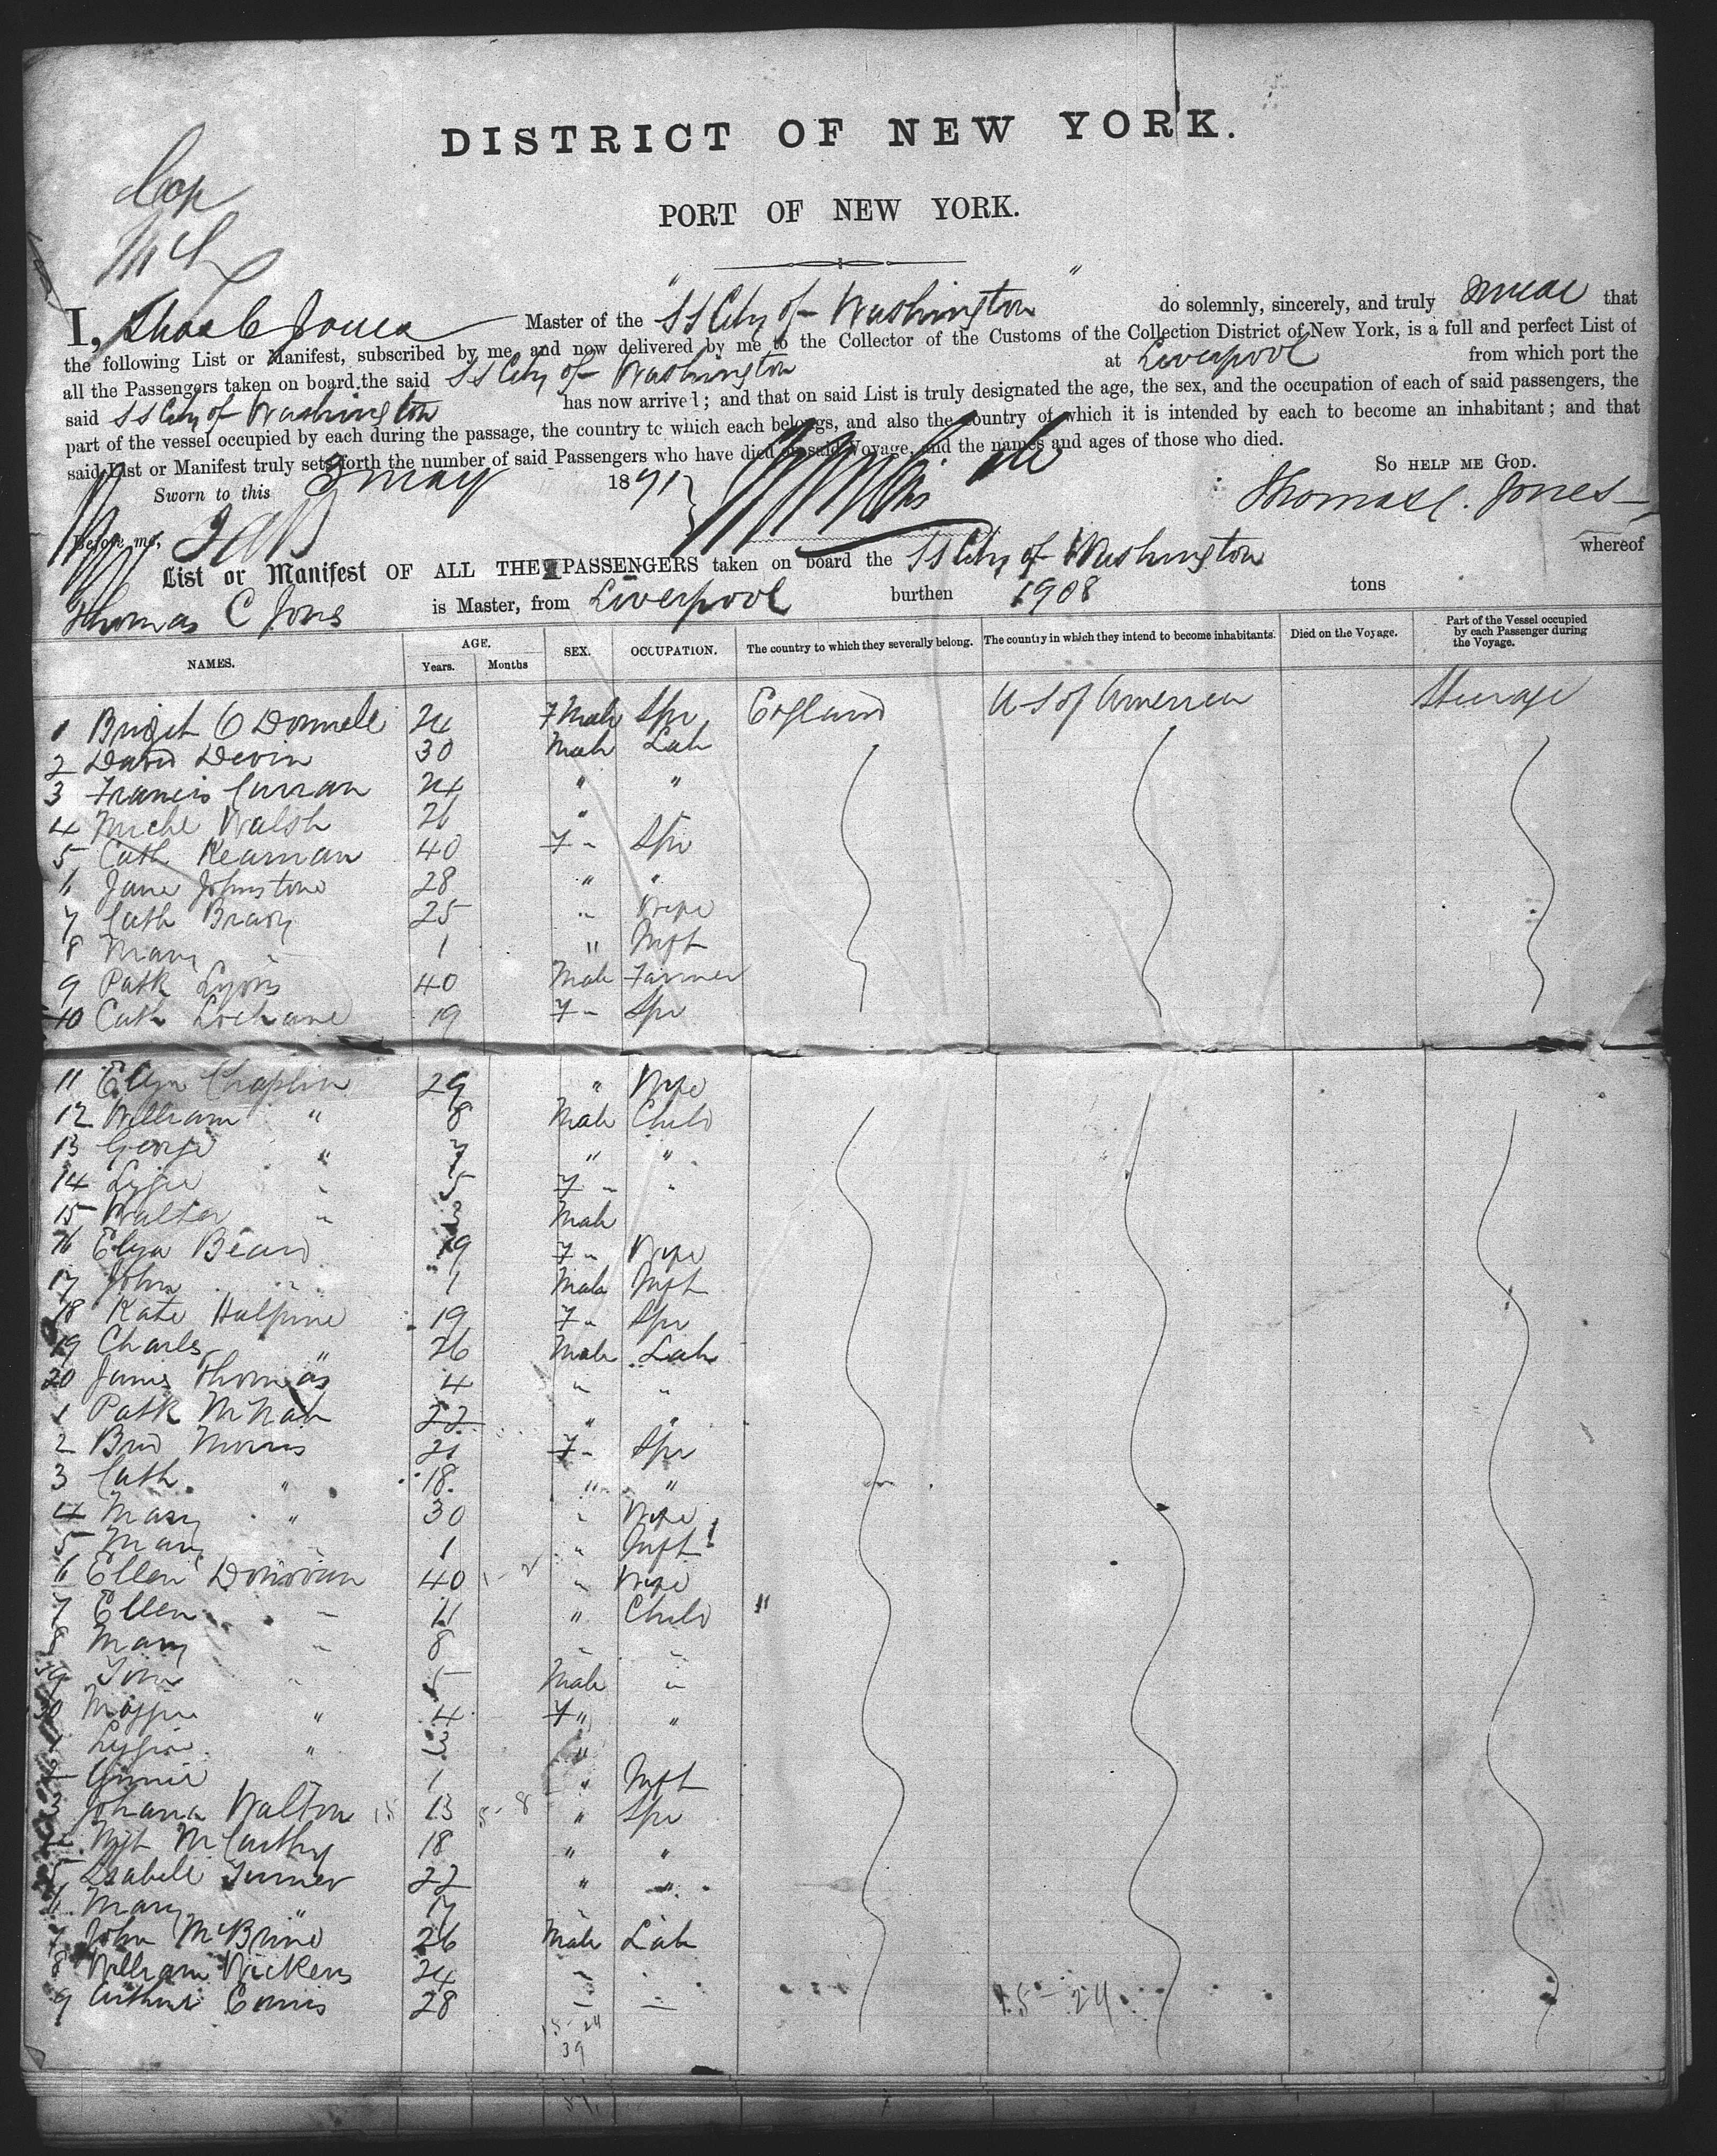 DISTRICT OF NEW YORK.
PORT OF NEW YORK.
I, Thos C Jones Master of the "SS City of Washington" do solemnly, sincerely, and truly swear that
the following List or Manifest, subscribed by me, and now delivered by me to the Collector of the Customs of the Collection District of New York, is a full and perfect List of
all the Passengers taken on board the said SS City of Washington at Liverpool from which port the
said SS City of Washington has now arrived; and that on said List is truly designated the age, the sex, and the occupation of each of said passengers, the
part of the vessel occupied by each during the passage, the country to which each belongs, and also the country of which it is intended by each to become an inhabitant; and that
said List or Manifest truly sets forth the number of said Passengers who have died on said Voyage, and the names and ages of those who died.
So HELP ME GOD.
Sworn to this 3 May 18 Thomas C. Jones
Before me,
List or Manifest OF ALL THE PASSENGERS taken on board the SS City of Washington whereof
Thomas C Jones is Master, from Liverpool burthen 1908 tons
NAMES. AGE. Years. Months SEX. OCCUPATION. The country to which they severally belong. The country in which they intend to become inhabitants. Died on the Voyage. Part of the Vessel occupied by each Passenger during the Voyage.
1 Bridgt O Donnell 24 F Male Spr England U S of America Steerage
2 David Devin 30 Male Lab
3 Francis Curran 24 " "
4 Michl Walsh 26 "
5 Cath Kearnan 40 F " Spr
6 Jane Johnstone 28 " "
7 Cath Brady 25 " Wife
8 Mary " 1 " Inft
9 Patk Lyons 40 Male Farmer
10 Cath Lochane 19 F " Spr
11 Eliza Chaplin 29 " Wife
12 William " 8 Male Child
13 George " 7 " "
14 Lizzie " 5 F " "
15 Walter " 3 Male
16 Eliza Beard 19 F " Wife
17 John " 1 Male Inft
18 Kate Halpine 19 F " Spr
19 Charles " 26 Male Lab
20 James Thomas 4 " "
1 Patk McNab 22 " "
2 Brid Morris 21 F " Spr
3 Cath " 18 " "
4 Mary " 30 " Wife
5 Mary 1 " Inft
6 Ellen Donovan 40 " Wife
7 Ellen " 11 " Child "
8 Mary " 8 " "
9 Tom " 5 Male "
30 Maggie " 4 F " "
1 Lizzie " 3 "
2 Annie 1 " Inft
3 Johana Walton 13 " Spr
4 Mgt McCarthy 18 " "
5 Isabell Turner 22 " "
6 Mary " 17 "
7 John McBrine 26 Male Lab
8 William Wickens 24 " "
9 Arthur 28 " "
15-24
15-24
39